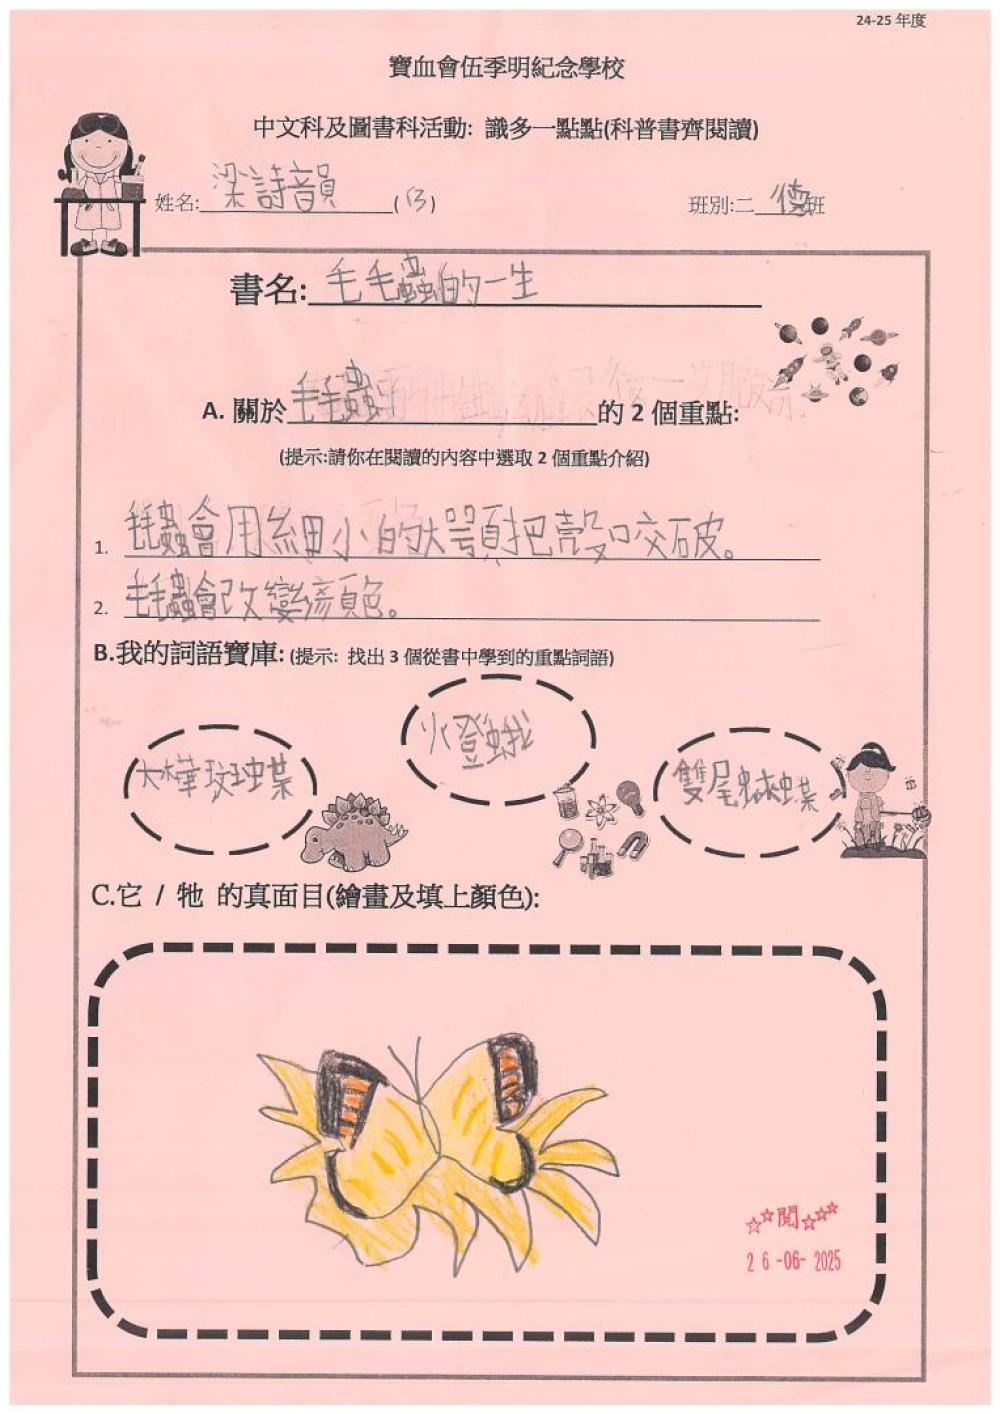 24-25 年度
寶血會伍季明紀念學校
中文科及圖書科活動: 識多一點點(科普書齊閱讀)
姓名: 梁詩韻 (13) 班別:二 德 班
書名: 毛毛蟲的一生
A. 關於 毛毛蟲 的 2 個重點:
(提示:請你在閱讀的內容中選取 2 個重點介紹)
1. 毛毛蟲會用細小的大顎把殼咬破。
2. 毛毛蟲會改變顏色。
B.我的詞語寶庫: (提示: 找出 3 個從書中學到的重點詞語)
火登蛾
大樺斑蝶
雙尾蛺蝶
C.它 / 牠 的真面目(繪畫及填上顏色):
☆☆閱☆☆☆
26-06-2025